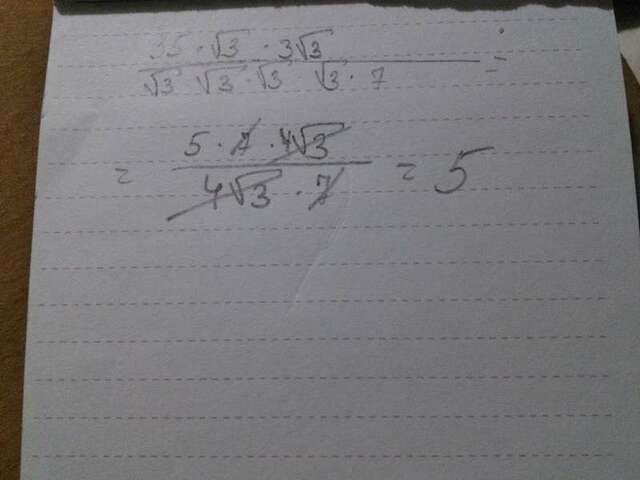 35 · √3 · 3√3
√3 · √3 · √3 √3 · 7 =
= 5 · 7 · 4√3
4√3 · 7 = 5